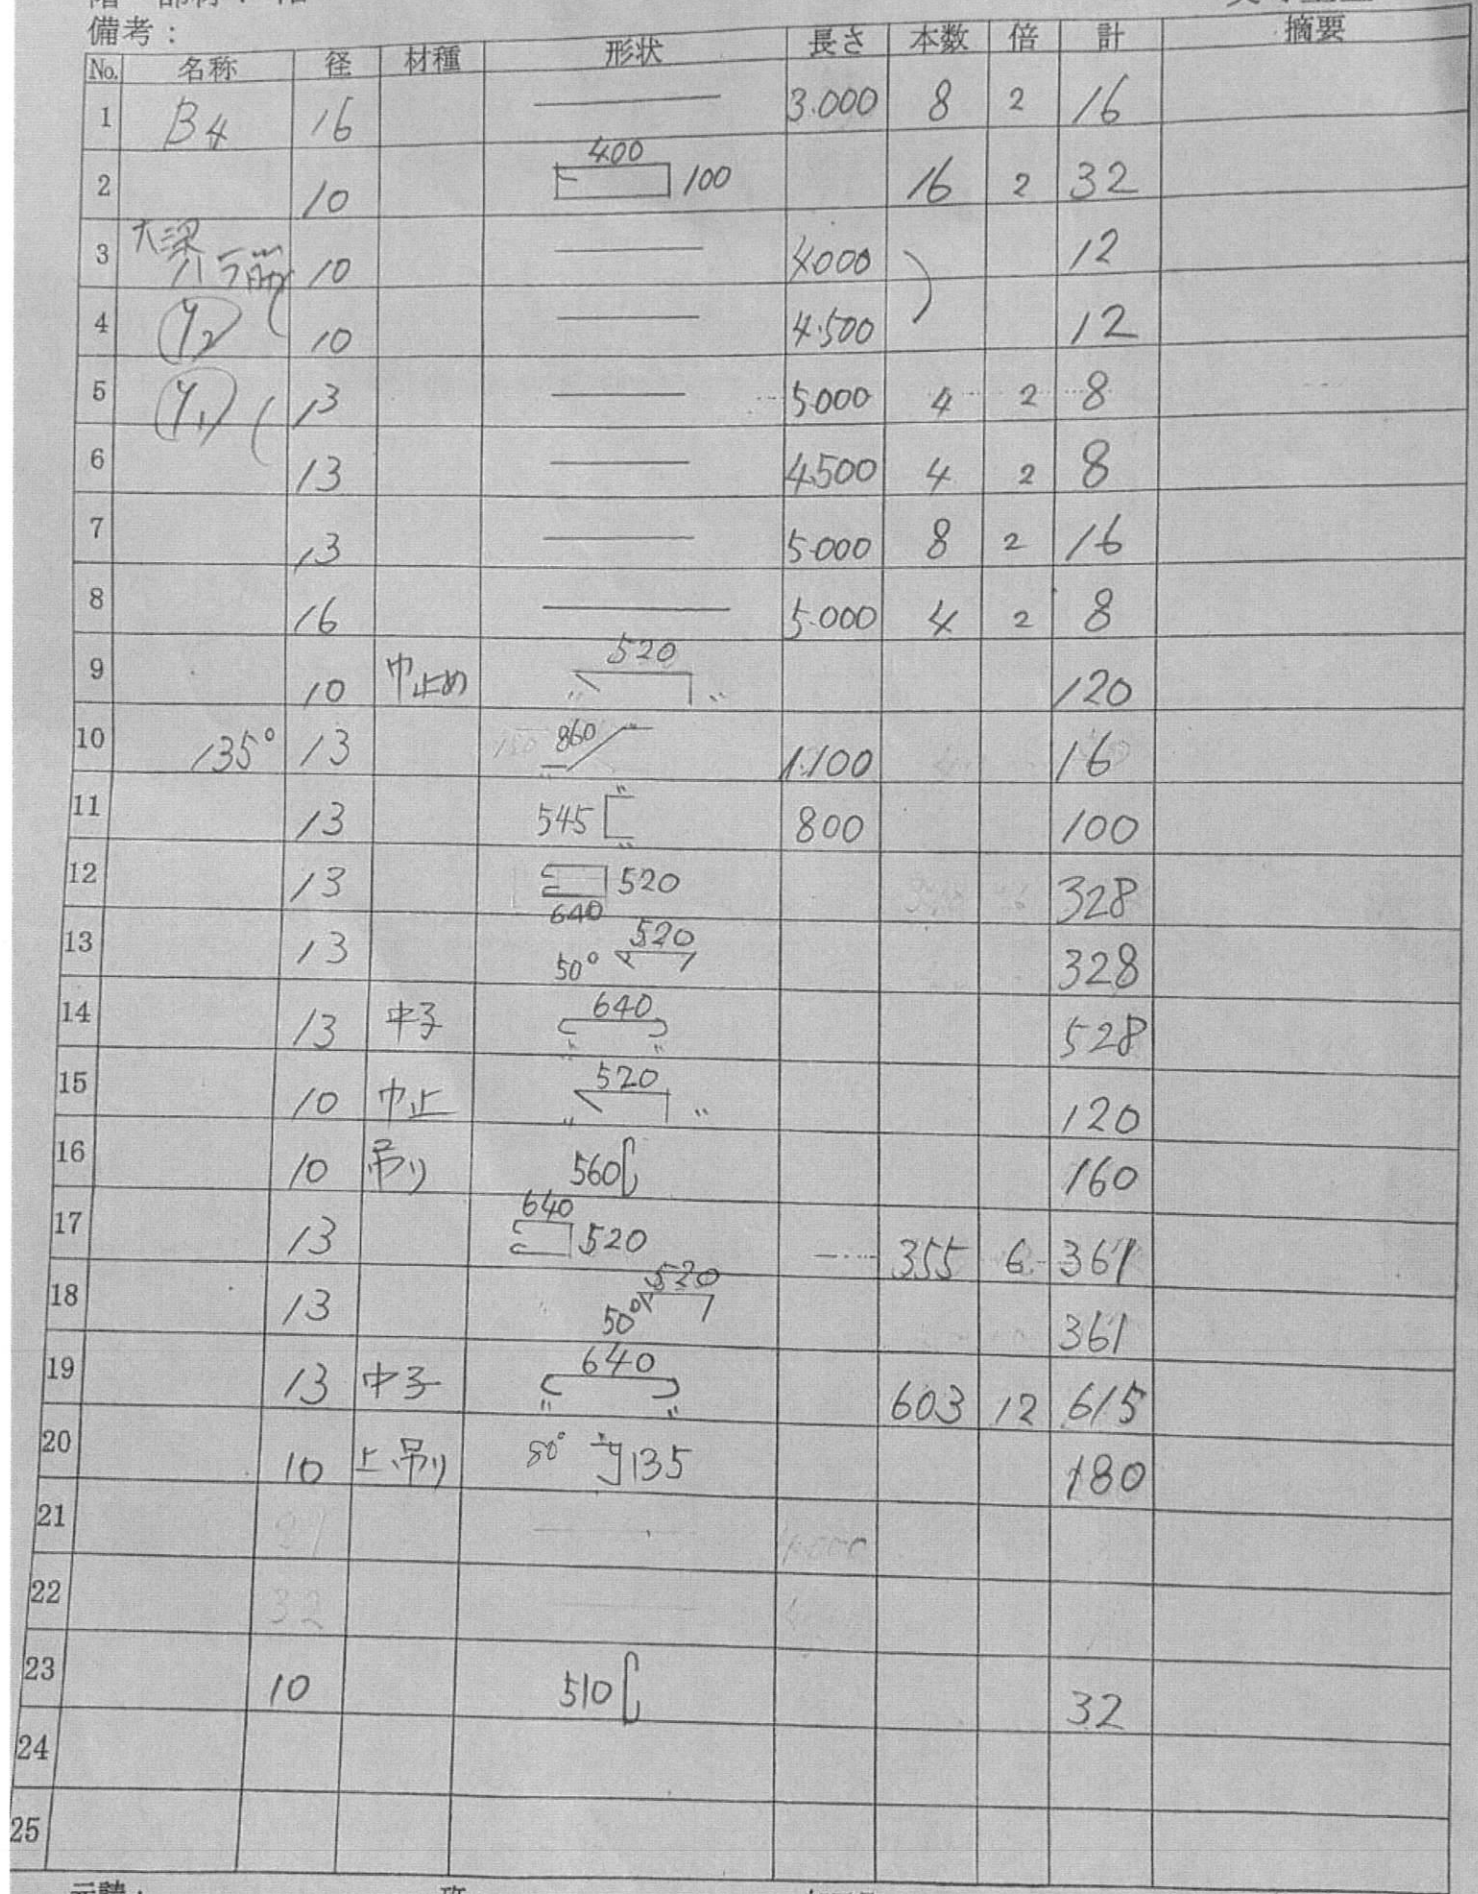 備考：
No. 名称 径 材種 形状 長さ 本数 倍 計 摘要
1 B4 16 3.000 8 2 16
2 10 400 100 16 2 32
3 大梁 ハラ筋 10 4000 12
4 Y2 10 4.500 12
5 Y1 13 5000 4 2 8
6 13 4.500 4 2 8
7 13 5.000 8 2 16
8 16 5.000 4 2 8
9 10 巾止め 520 〃 〃 120
10 135° 13 860 〃 〃 1.100 16
11 13 545 〃 〃 800 100
12 13 520 640 328
13 13 50° 520 328
14 13 中子 640 〃 〃 528
15 10 巾止 520 〃 〃 120
16 10 吊り 560 160
17 13 640 520 355 6 361
18 13 50° 520 361
19 13 中子 640 〃 〃 603 12 615
20 10 上吊り 80° 135 180
21
22 32
23 10 510 32
24
25